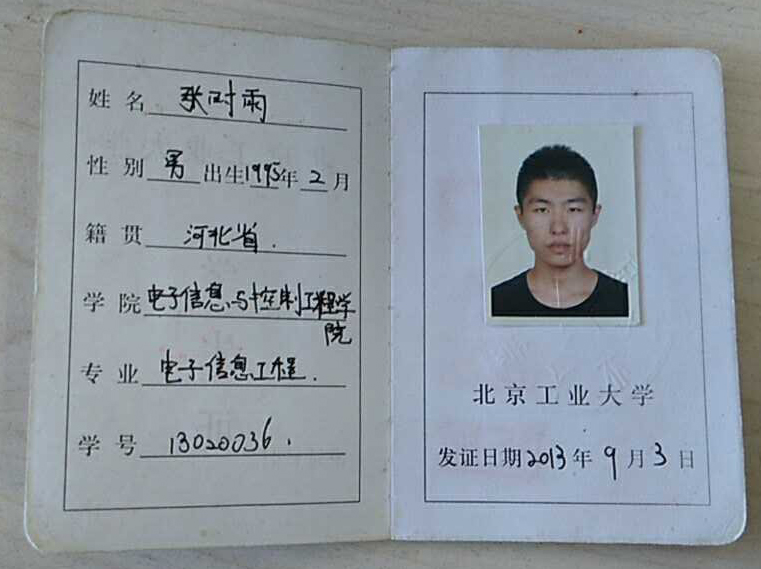 姓名 张时雨
性别 男 出生1995年2月
籍贯 河北省.
学院 电子信息与控制工程学
院
专业 电子信息工程.
学号 13020036.
北京工业大学
发证日期2013年9月3日